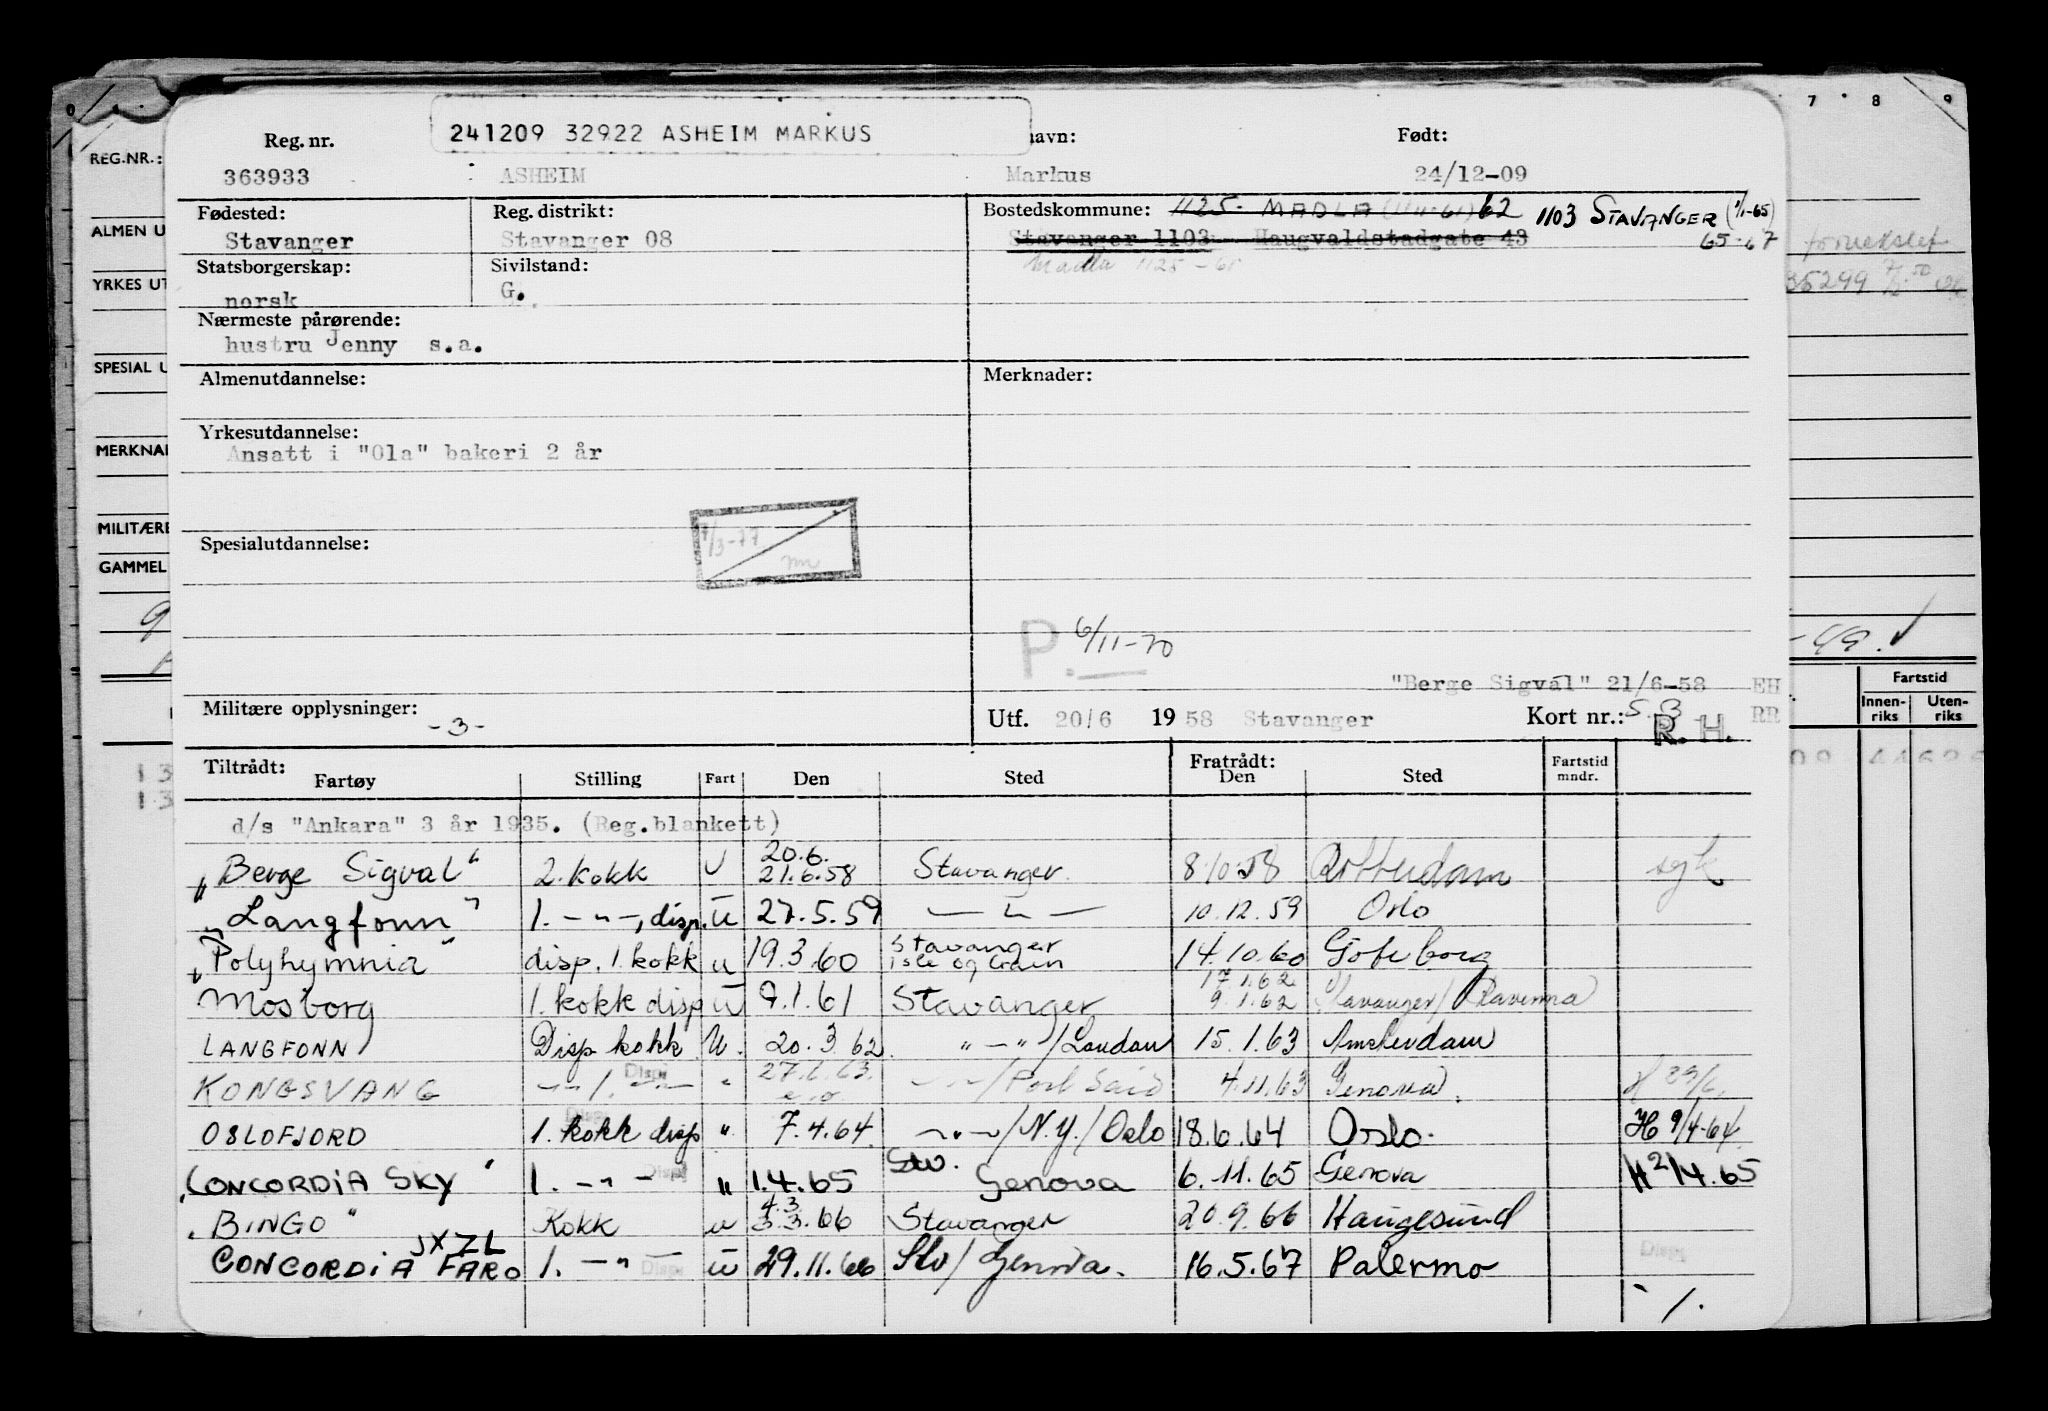 241209 32922 ASHEIM MARKUS
Reg. nr. navn: Født:
363933 ASHEIM Markus 24/12-09
Fødested: Reg. distrikt: Bostedskommune: 1125 MADLA (1/11-61) 62 1103 STAVANGER (1/1-65)
Stavanger Stavanger 08 Stavanger 1103 Haugvaldstadgate 43 65-67
Statsborgerskap: Sivilstand: Madla 1125 - 61
norsk G.
Nærmeste pårørende:
hustru Jenny s.a.
Almenutdannelse: Merknader:
Yrkesutdannelse:
Ansatt i "Ola" bakeri 2 år
7/3-77
Spesialutdannelse:
P. 6/11-70
"Berge Sigval" 21/6-58 EH
Militære opplysninger: -3- Utf. 20/6 1958 Stavanger Kort nr.: 5.3 RR
R. H.
Tiltrådt: Fratrådt: Fartstid
Fartøy Stilling Fart Den Sted Den Sted mndr.
d/s "Ankara" 3 år 1935. (Reg.blankett)
20.6.
"Berge Sigval" 2. kokk U 21.6.58 Stavanger. 8.10.58 Rotterdam sjk
"Langfonn" 1. -"-, disp. U 27.5.59 -"- 10.12.59 Oslo
"Polyhymnia" disp. 1. kokk u 19.3.60 Stavanger 14.10.60 Göteborg
17.1.62
Mosborg 1. kokk disp U 9.1.61 Stavanger 9.1.62 Stavanger/Ravenna
LANGFONN Disp kokk U. 20.3.62. "-"/London 15.1.63 Amsterdam
KONGSVANG -"- 1. Disp -"- " 27.6.63. -"-/Port Said 4.11.63 Genova. H 29/6.
OSLOFJORD 1. kokk disp " 7.4.64. -"-/N.Y./Oslo 18.6.64 Oslo. H 9/4-64
"CONCORDIA SKY" 1. -"- Disp " 1.4.65 Stv. Genova 6.11.65 Genova H 2/4.65
4.3
"BINGO" Kokk u 3.3.66 Stavanger 20.9.66 Haugesund
JXZL
CONCORDIA FARO 1. -"- Disp U 29.11.66 Stv/Genova. 16.5.67 Palermo Disp
/.
REG.NR.:
ALMEN U
YRKES UT
SPESIAL U
MERKNA
MILITÆRE
GAMMEL
7 8 9
35299
-49.
Fartstid
Innenriks Utenriks